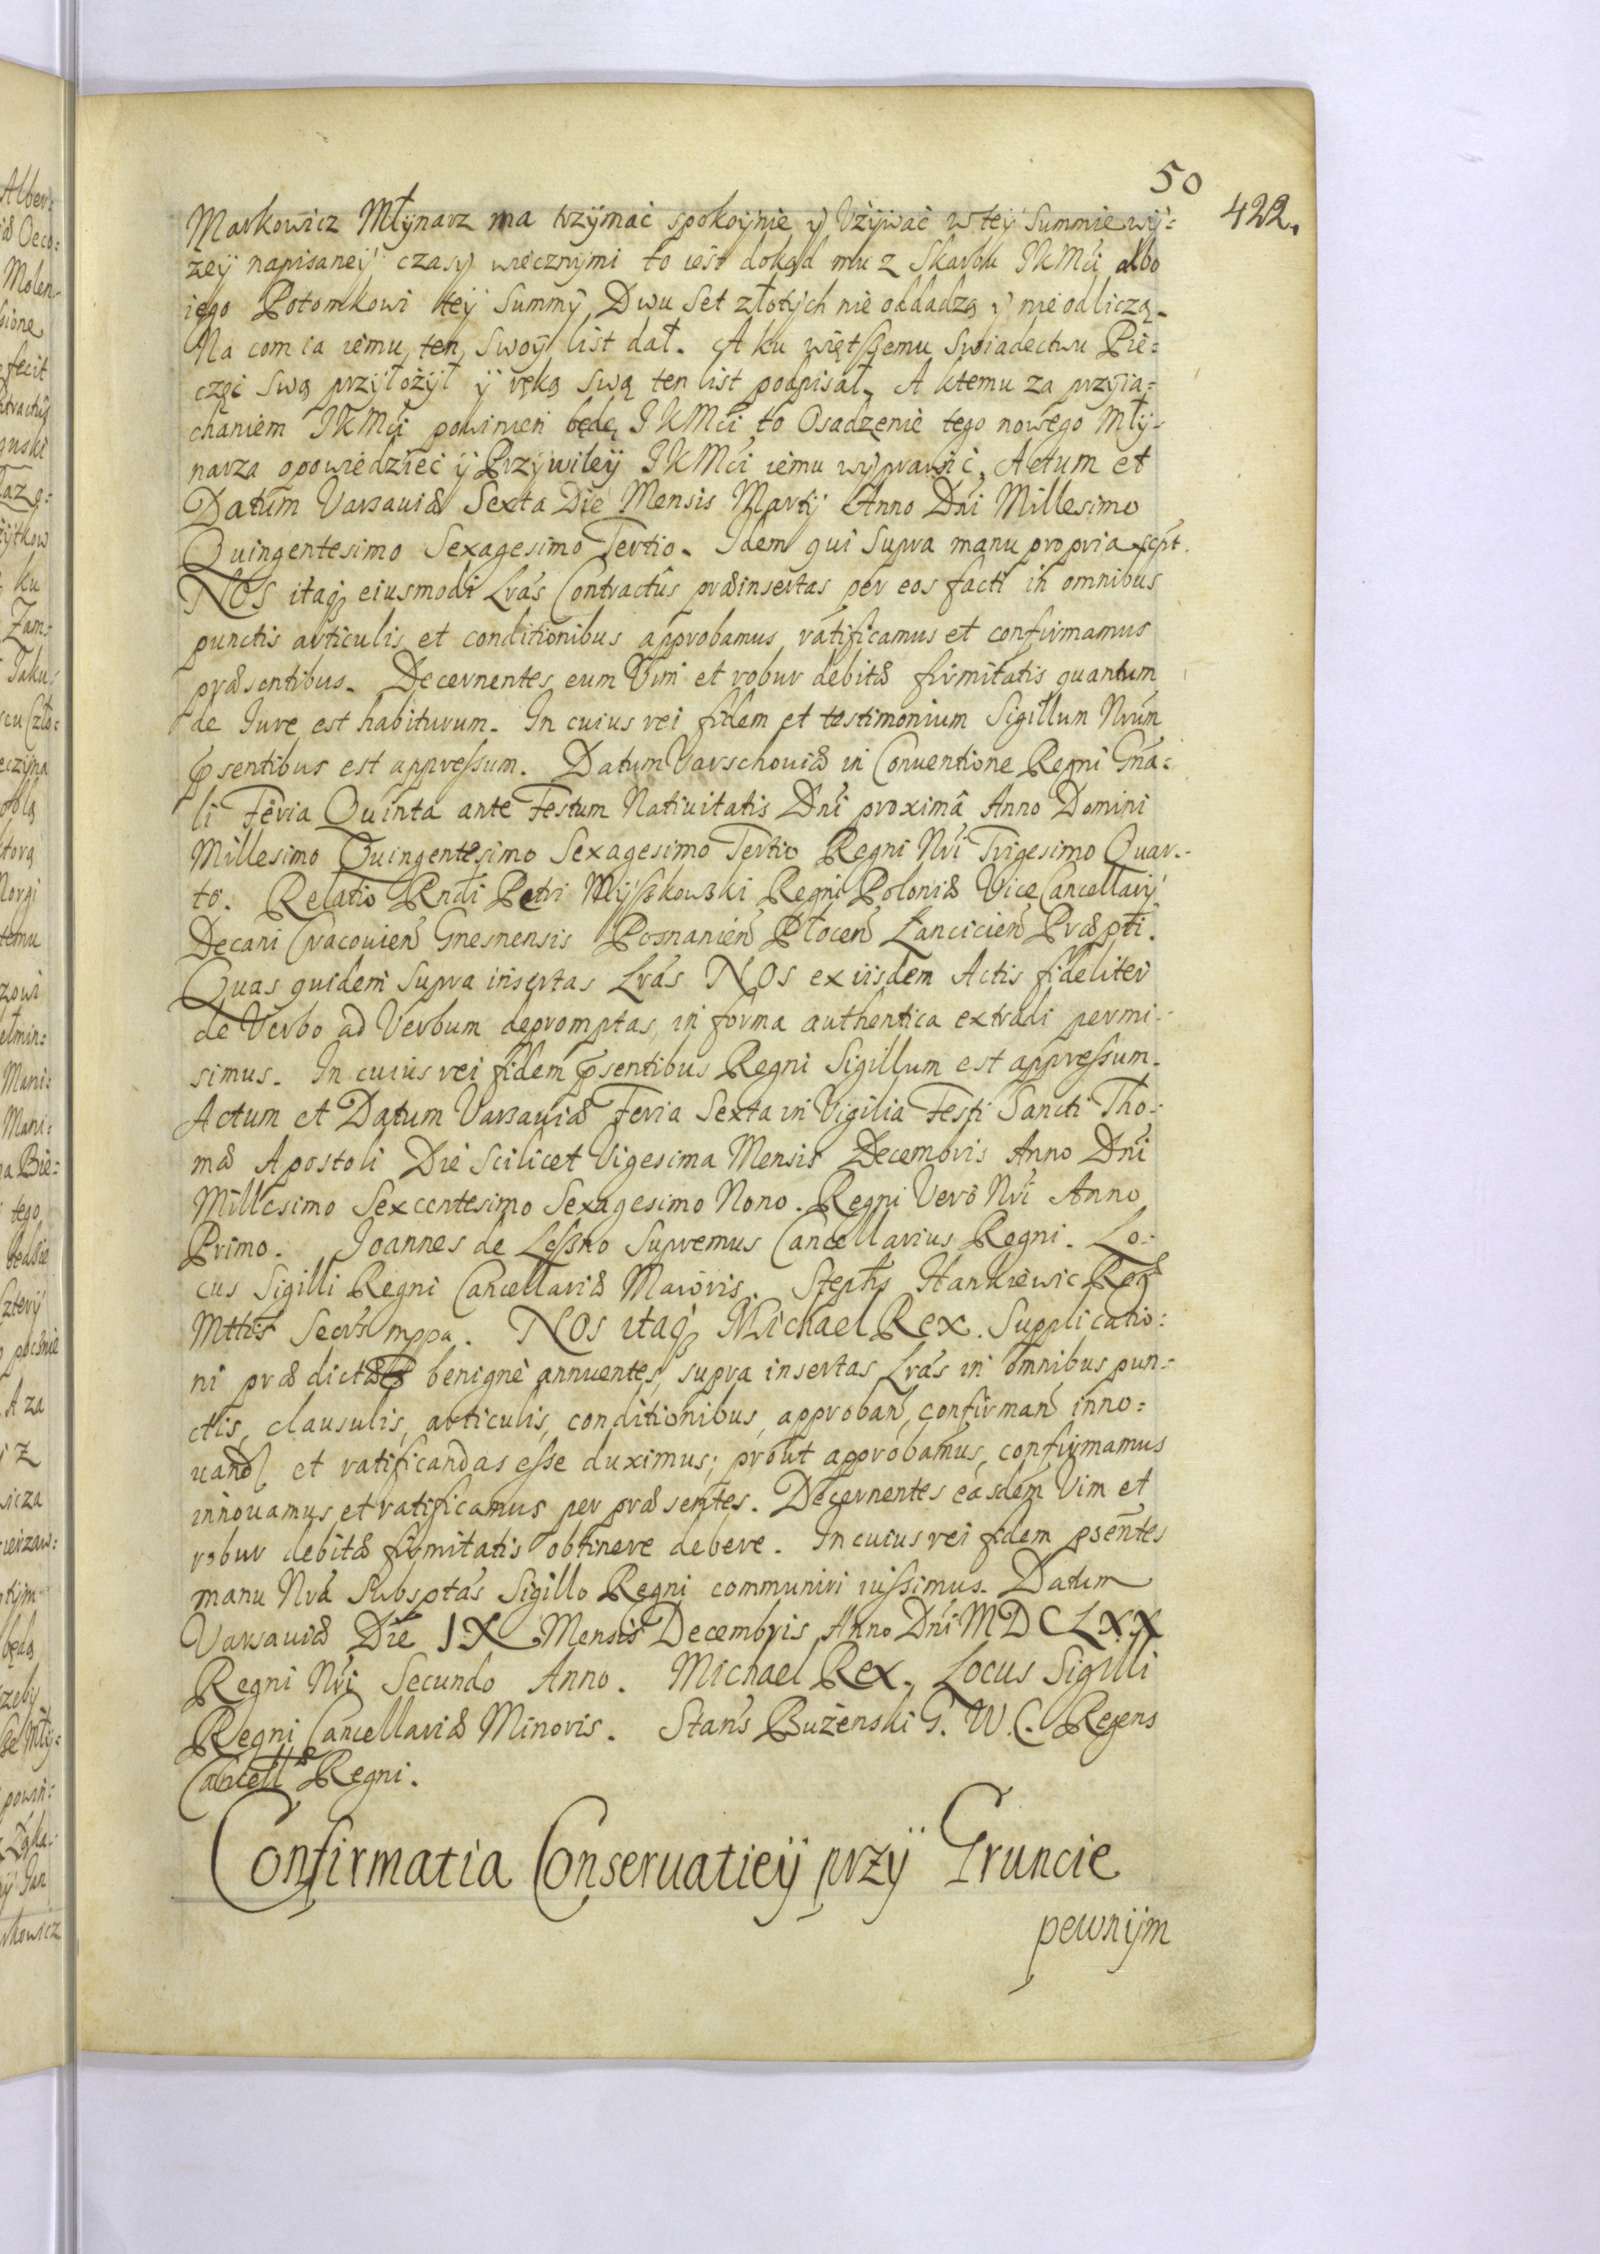 50
422.
Markowicz Młÿnarz ma trzÿmać spokoÿnie ÿ Vżÿwać w teÿ Summie wÿ:
żeÿ napisaneÿ czasÿ wiecznÿmi to iest dokąd mu z Skarbu JKMći albo
iego Potomkowi teÿ Summÿ Dwu Set złotÿch nie oddadzą ÿ nie odliczą.
Na com ia iemu ten Swoÿ list dał. A ku więtszemu Swiadectwu Pie:
częć Swą przÿłożÿł ÿ ręką Swą ten list podpisał. A ktemu za przÿia:
chaniem JKMći powinien będę JKMći to Osadzenie tego nowego Młÿ:
narza opowiedzieć ÿ Przÿwileÿ JKMći iemu wÿprawić. Actum et
Datum Varsauiæ Sexta Die Mensis Martÿ Anno Dñi Millesimo
Quingentesimo Sexagesimo Tertio. Idem qui Supra manu propria scpt.
NOS itaq eiusmodi Lras Contractus præinsertas per eos facti in omnibus
punctis articulis et conditionibus approbamus ratificamus et confirmamus
præsentibus. Decernentes eum Vim et robur debitæ firmitatis quantum
de Iure est habiturum. In cuius rei fidem et testimonium Sigillum Nrum
psentibus est appressum. Datum Varschouiæ in Conuentione Regni Gna:
li Feria Quinta ante Festum Natiuitatis Dñi proxima Anno Domini
Millesimo Quingentesimo Sexagesimo Tertio Regni Nri Trigesimo Quar:
to. Relatio Rndi Petri Mÿszkowski Regni Poloniæ Vice Cancellarÿ
Decani Cracouien Gnesnensis Posnanien Płocen Lancicien Præpti.
Quas quidem Supra insertas Lras NOS ex iisdem Actis fideliter
de Verbo ad Verbum depromptas in forma authentica extradi permi:
simus. In cuius rei fidem psentibus Regni Sigillum est appressum.
Actum et Datum Varsauiæ Feria Sexta in Vigilia Festi Sancti Tho:
mæ Apostoli Die Scilicet Vigesima Mensis Decembris Anno Dñi
Millesimo Sexcentesimo Sexagesimo Nono. Regni Vero Nri Anno
Primo. Joannes de Leszno Supremus Cancellarius Regni. Lo:
cus Sigilli Regni Cancellariæ Maioris. Stephs Hankiewic Regæ
Mttis Secrs mppa. NOS itaq Michael Rex. Supplicatio:
ni prædictæ benigne annuentes, supra insertas Lras in omnibus pun:
ctis, clausulis, articulis, conditionibus, approban confirman inno:
uand et ratificandas esse duximus; prout approbamus, confirmamus
innouamus et ratificamus per præsentes. Decernentes easdem Vim et
robur debitæ firmitatis obtinere debere. In cuius rei fidem psentes
manu Nra Subsptas Sigillo Regni communiri iussimus. Datum
Varsauiæ Die IX Mensis Decembris Anno Dñi MDCLXX
Regni Nri Secundo Anno. Michael Rex. Locus Sigilli
Regni Cancellariæ Minoris. Stans Bużenski G. W. C. Regens
Cancellæ Regni.
Confirmatia Conseruatieÿ przÿ Gruncie
pewnÿm